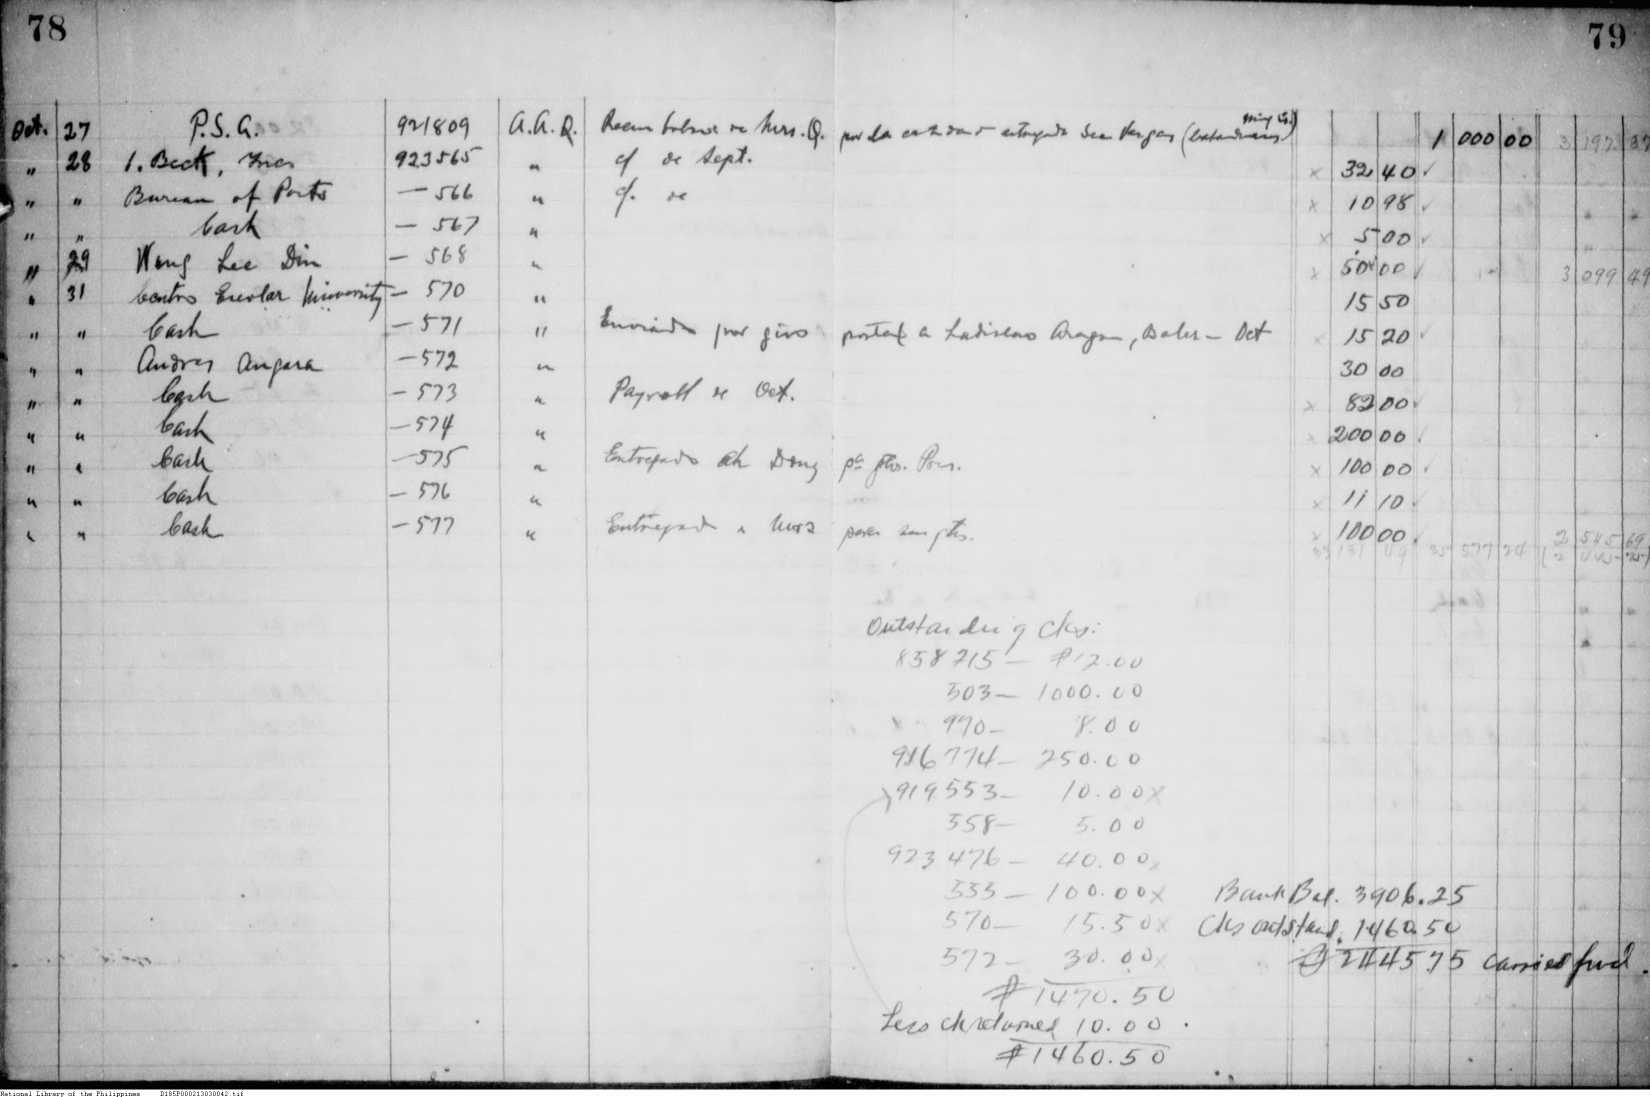 78
79
Oct. 27 P.S.A. 921809 A.A.Q. de Mrs. Q. por la entregada Sra Vargas 1 000 00 3 197 37
" 28 I. Beck, Inc. 923565 " c/ de Sept. x 32 40 ✓
" " Bureau of Posts — 566 " c/. de x 10 98 ✓
" " Cash — 567 " x 5 00 ✓
" 29 Wong Lee Din — 568 " x 50 00 ✓ 3 099 49
" 31 Centro Escolar University — 570 " 15 50
" " Cash — 571 " Enviado por giro postal a Ladislao Aragon, Baler — Oct x 15 20 ✓
" " Andres Angara — 572 " 30 00
" " Cash — 573 " Payroll de Oct. x 82 00 ✓
" " Cash — 574 " x 200 00 ✓
" " Cash — 575 " Entregado Ah Dong pa gtos. Prov. x 100 00 ✓
" " Cash — 576 " x 11 10 ✓
" " Cash — 577 " Entregado a Mrs para sus gtos. x 100 00 ✓ 2 545 69
35 577 24
Outstanding cks:
858215 — ₱12.00
303 — 1000.00
970 — 8.00
916774 — 250.00
919553 — 10.00 x
558 — 5.00
923476 — 40.00 x
535 — 100.00 x
570 — 15.50 x
572 — 30.00 x
₱1470.50
Less ck returned 10.00
₱1460.50
Bank Bal. 3906.25
Cks outstand. 1460.50
₱ 2445.75 carried fwd.
National Library of the Philippines D185P000213030042.tif